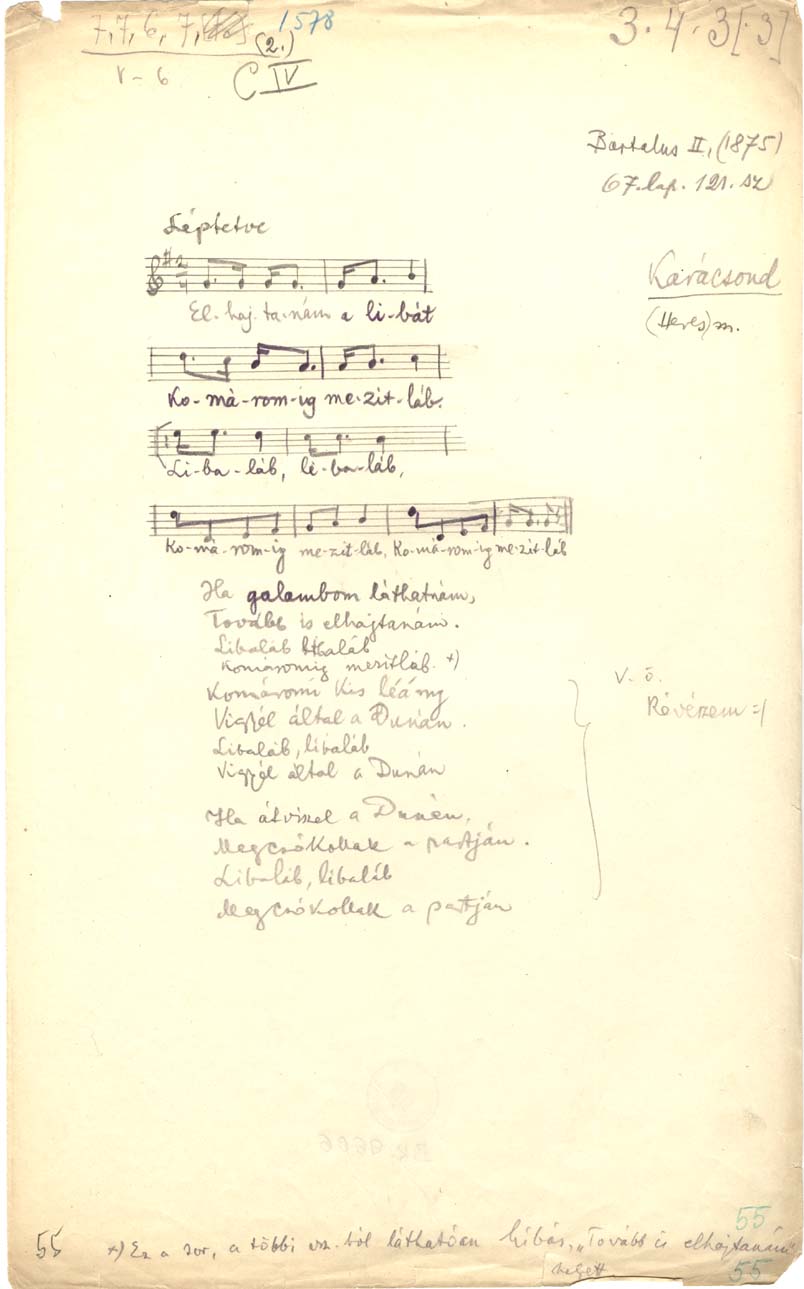 7,7,6,7, (2.) 1578
V-6
C IV
3.4.3[.3]
Bartalus II, (1875)
67.lap. 121. sz
Karácsond
(Heves)m.
Léptetve
2
4
El-haj-ta-nám a li-bát
Ko-má-rom-ig me-zit-láb.
Li-ba-láb, li-ba-láb,
Ko-má-rom-ig me-zit-láb, Ko-má-rom-ig me-zit-láb
Ha galambom láthatnám,
Tovább is elhajtanám.
Libaláb libaláb
Komáromig mezitláb. +)
Komáromi Kis léány
Vigyél által a Dunán.
Libaláb, libaláb
Vigyél által a Dunán
V. ö.
Révészem =/
Ha átviszel a Dunán,
Megcsókollak a partján.
Libaláb, libaláb
Megcsókollak a partján
55
+) Ez a sor, a többi vsz.-ból láthatóan hibás, „Tovább is elhajtanám"
helyett
55
55